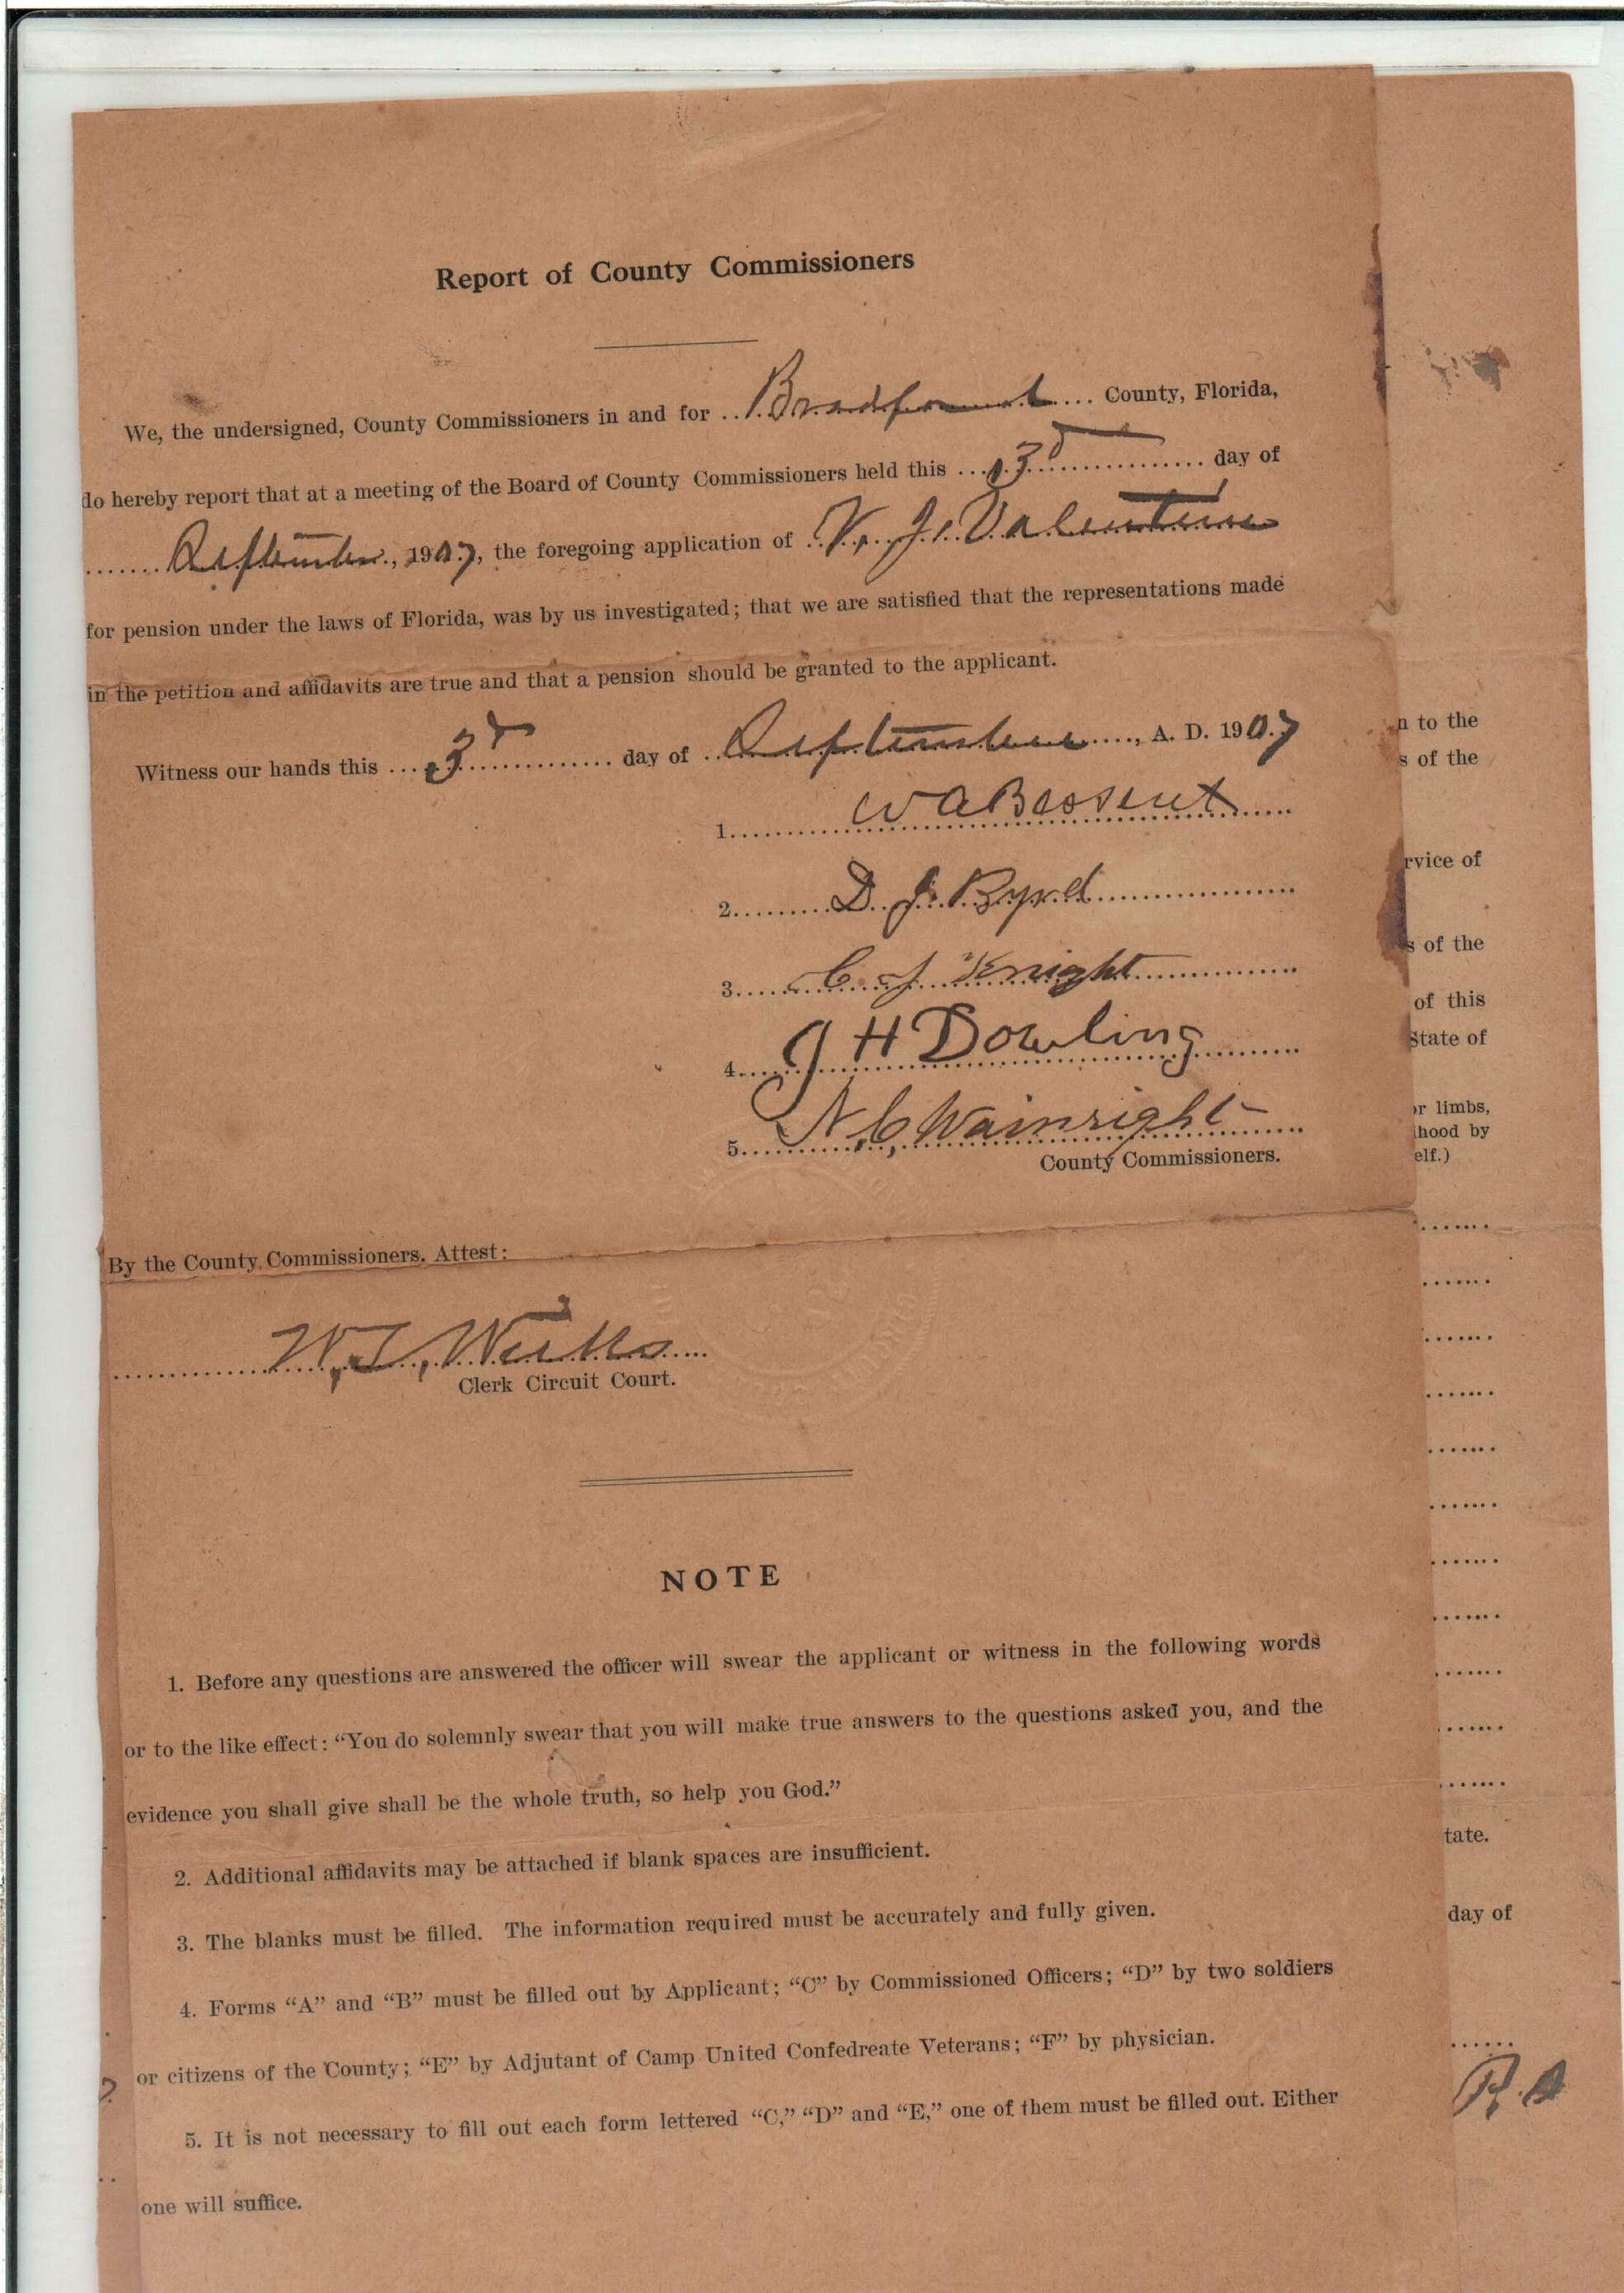 Report of County Commissioners
We, the undersigned, County Commissioners in and for Bradford County, Florida,
do hereby report that at a meeting of the Board of County Commissioners held this 3d day of
September, 1907, the foregoing application of V. J. Valentine
for pension under the laws of Florida, was by us investigated; that we are satisfied that the representations made
in the petition and affidavits are true and that a pension should be granted to the applicant.
Witness our hands this 3d day of September, A. D. 1907
1. W A Bessent
2. D. J. Byrd
3. C. J. Knight
4. J H Dowling
5. N. C. Wainright
County Commissioners.
By the County Commissioners. Attest:
W. T. Weeks
Clerk Circuit Court.
NOTE
1. Before any questions are answered the officer will swear the applicant or witness in the following words
or to the like effect: “You do solemnly swear that you will make true answers to the questions asked you, and the
evidence you shall give shall be the whole truth, so help you God.”
2. Additional affidavits may be attached if blank spaces are insufficient.
3. The blanks must be filled. The information required must be accurately and fully given.
4. Forms “A” and “B” must be filled out by Applicant; “C” by Commissioned Officers; “D” by two soldiers
or citizens of the County; “E” by Adjutant of Camp United Confedreate Veterans; “F” by physician.
5. It is not necessary to fill out each form lettered “C,” “D” and “E,” one of them must be filled out. Either
one will suffice.
n to the
s of the
rvice of
s of the
of this
State of
or limbs,
lhood by
elf.)
tate.
day of